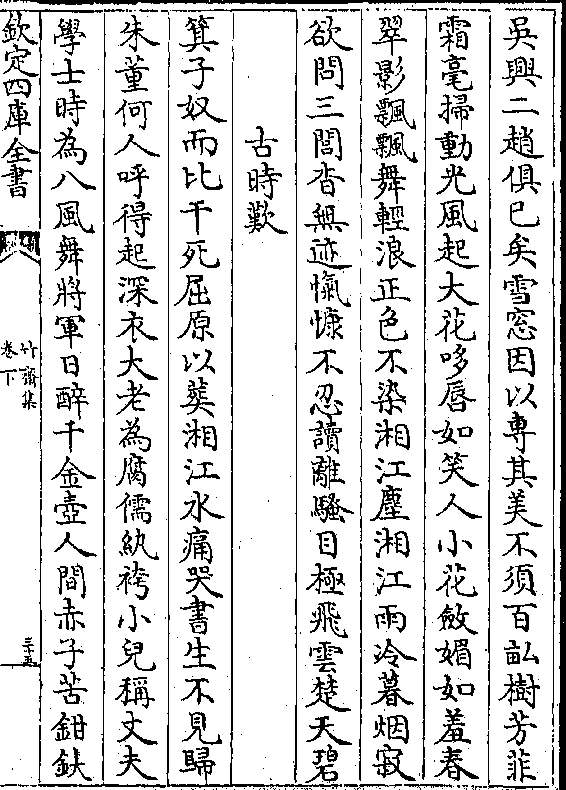 吳興二趙俱已矣雪窓因以專其美不須百畝樹芳菲
霜毫掃動光風起大花哆唇如笑人小花斂媚如羞春
翠影飄飄舞輕浪正色不染湘江塵湘江雨冷暮烟寂
欲問三閭杳無迹愾慷不忍讀離騷目極飛雲楚天碧
古時歎
箕子奴而比干死屈原以葬湘江水痛哭書生不見歸
朱董何人呼得起深衣大老為腐儒紈袴小兒稱丈夫
學士時為八風舞將軍日醉千金壺人間赤子苦鉗釱
欽定四庫全書
竹齋集
卷下
三十五